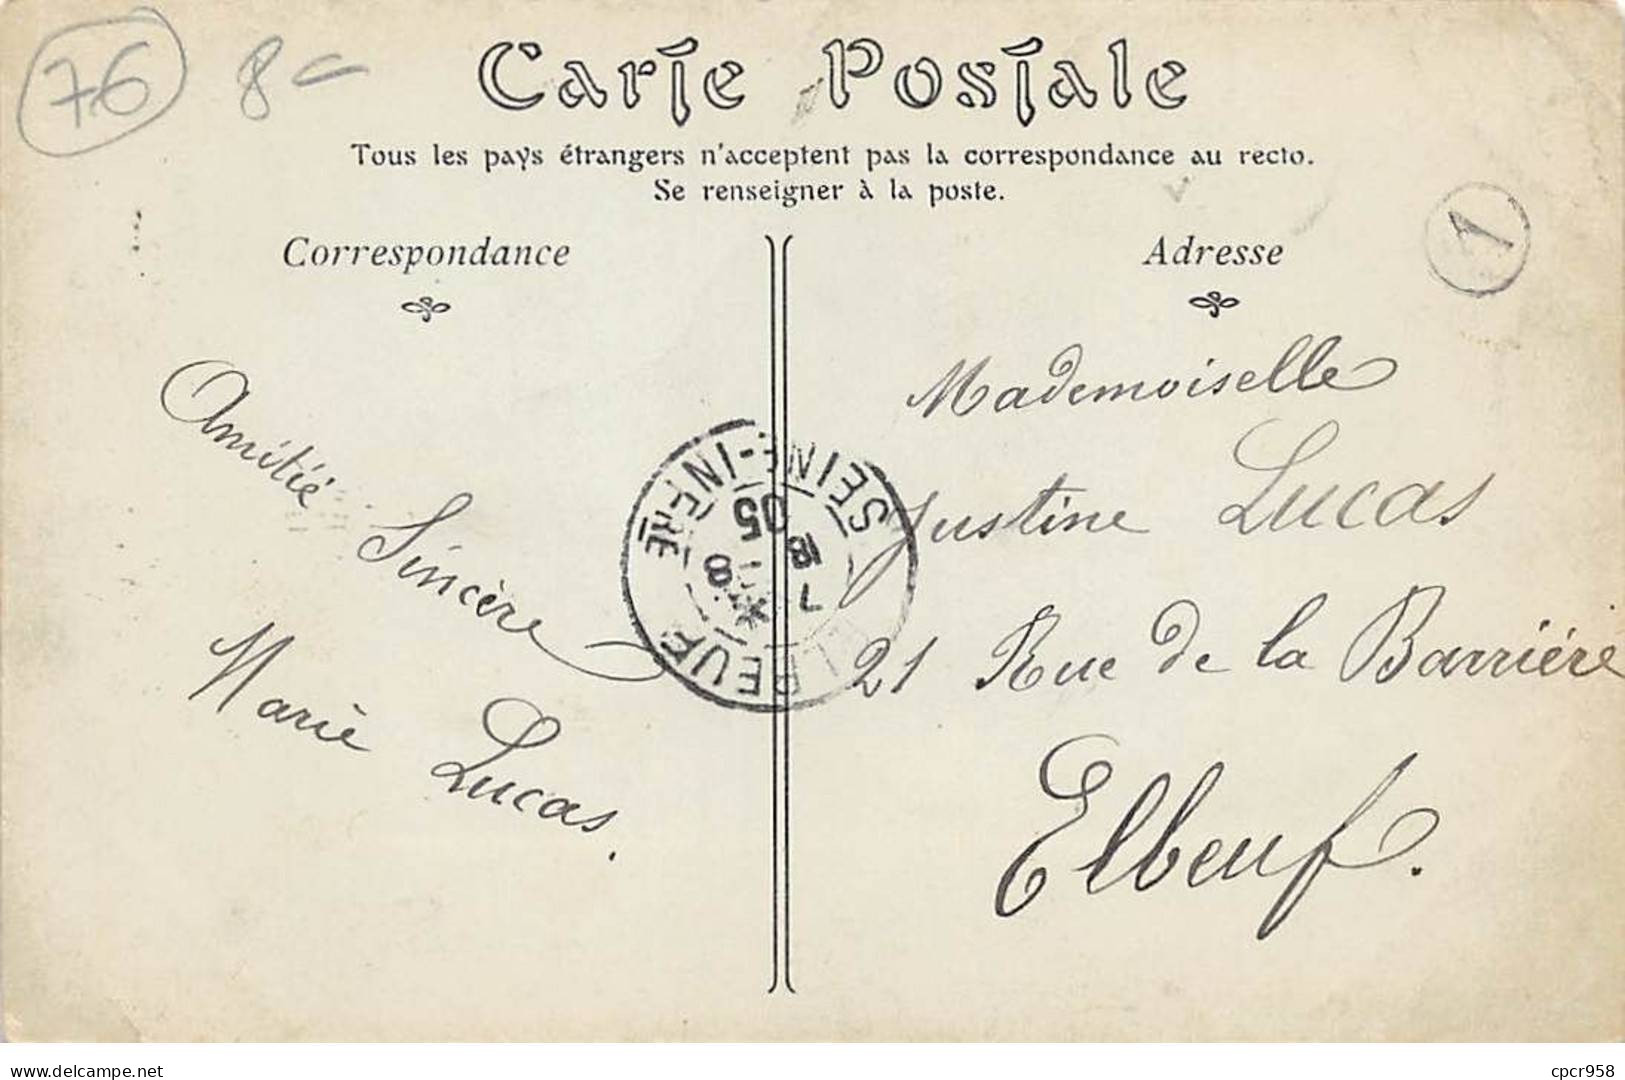 76 8-
Carte Postale
Tous les pays étrangers n'acceptent pas la correspondance au recto.
Se renseigner à la poste.
Correspondance
Amitié Sincère
Marie Lucas.
ELBEUF
SEINE-INFRE
8
18
7
05
Adresse
1
Mademoiselle
Justine Lucas
21 Rue de la Barrière
Elbeuf.
delcampe.net
cpcr958